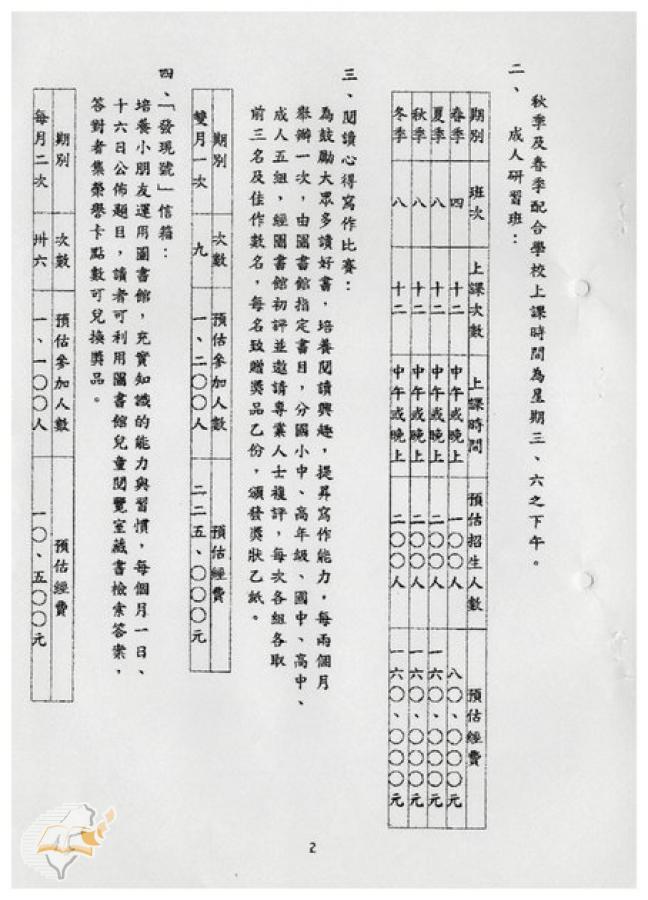 秋季及春季配合學校上課時間為星期三、六之下午。
二、成人研習班：
期別 班次 上課次數 上課時間 預估招生人數 預估經費
春季 四 十二 中午或晚上 一〇〇人 八〇、〇〇〇元
夏季 八 十二 中午或晚上 二〇〇人 一六〇、〇〇〇元
秋季 八 十二 中午或晚上 二〇〇人 一六〇、〇〇〇元
冬季 八 十二 中午或晚上 二〇〇人 一六〇、〇〇〇元
三、閱讀心得寫作比賽：
為鼓勵大眾多讀好書，培養閱讀興趣，提昇寫作能力，每兩個月
舉辦一次，由圖書館指定書目，分國小中、高年級、國中、高中、
成人五組，經圖書館初評並邀請專業人士複評，每次各組各取
前三名及佳作數名，每名致贈獎品乙份，頒發獎狀乙紙。
期別 次數 預估參加人數 預估經費
雙月一次 九 一、二〇〇人 二二五、〇〇〇元
四、「發現號」信箱：
培養小朋友運用圖書館，充實知識的能力與習慣，每個月一日、
十六日公佈題目，讀者可利用圖書館兒童閱覽室藏書檢索答案，
答對者集榮譽卡點數可兌換獎品。
期別 次數 預估參加人數 預估經費
每月二次 卅六 一、一〇〇人 一〇、五〇〇元
2